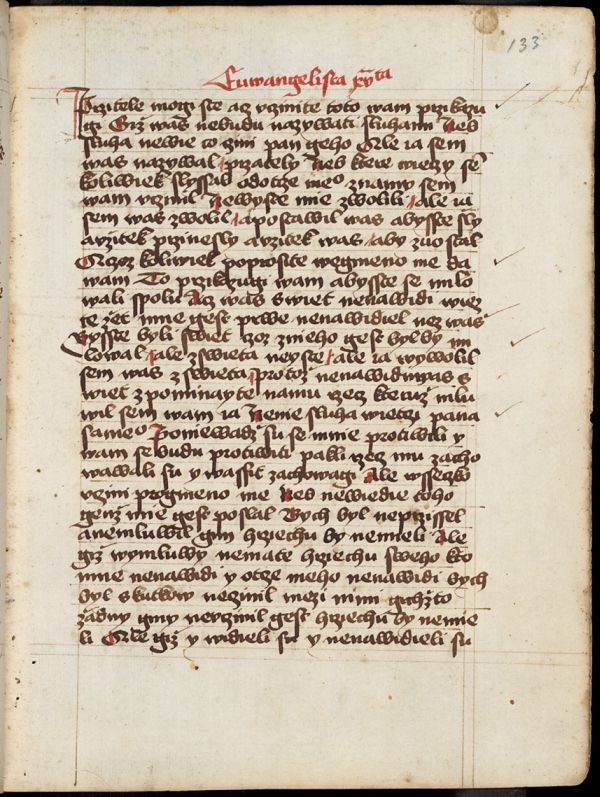 133
Euwangelista xpᷓta
Przitele mogi ste acz vczinite toto wam przikazu
gi Giz was nebudu nazywati sluhami Neb
sluha newie co czini pan geho Ale ia sem
was nazywal przately neb ktere wieczy sē
koliwiek slyssal odotcze meº znamy sem
wam vczinil Newyste mie zwolili ale ia
sem was zwolil a postawil was abysste sly
a vzitek przinesly a vzitek was aby zuostal
Aczoz koliwiek poprosite wegmeno me da
wam To przikazugi wam abysste se milo
wali spolu Acz was swiet nenawidi wiez
te zet mne gest prwe nenawidiel nez was
Bysste byli swiet czoz znieho gest bylby mi
lowal ale zswieta neyste ale ia wywolil
sem was zswieta protoz nenawidi was s
wiet zpominayte namu rzecz kteruz mlu
wil sem wam ia Nenie sluha wietczi pana
sameº Poniewadz su se mnie protiwili y
wam se budu protiwiti pakli rzecz mu zacho
wawali su y wassie zachowagi Ale wsseczko
vczini progmeno me Neb newiedie toho
genz mie gest poslal Bych byl neprzissel
a nemluwil gim hrziechu by nemieli Ale
giz wymluwy nemate hrziechu sweho kto
mne nenawidi y otcze meho nenawidi bych
byl skutkow neczinil mezi nimi gichzto
zadny giny neuczinil gest hrziechu by nemie
li Ale giz y widieli su y nenawidieli su